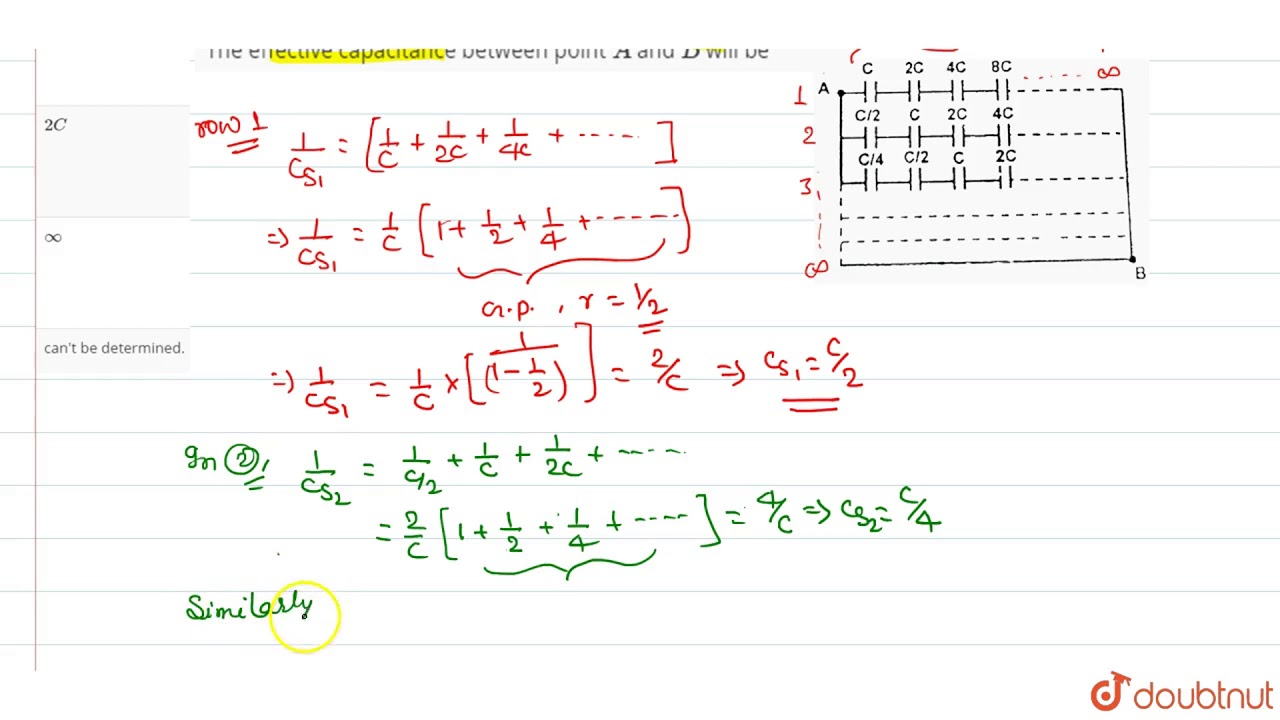 The effective capacitance between point A and B will be
2C
∞
can't be determined.
C 2C 4C 8C ...... ∞
1 A
C/2 C 2C 4C
2
C/4 C/2 C 2C
3
∞
B
row 1
1/CS₁ = [1/C + 1/2C + 1/4C + ......]
⇒ 1/CS₁ = 1/C [1 + 1/2 + 1/4 + ......]
G.P. , r = 1/2
⇒ 1/CS₁ = 1/C × [1/(1 - 1/2)] = 2/C ⇒ CS₁ = C/2
In ②, 1/CS₂ = 1/C/2 + 1/C + 1/2C + ......
= 2/C [1 + 1/2 + 1/4 + ......] = 4/C ⇒ CS₂ = C/4
Similarly
doubtnut